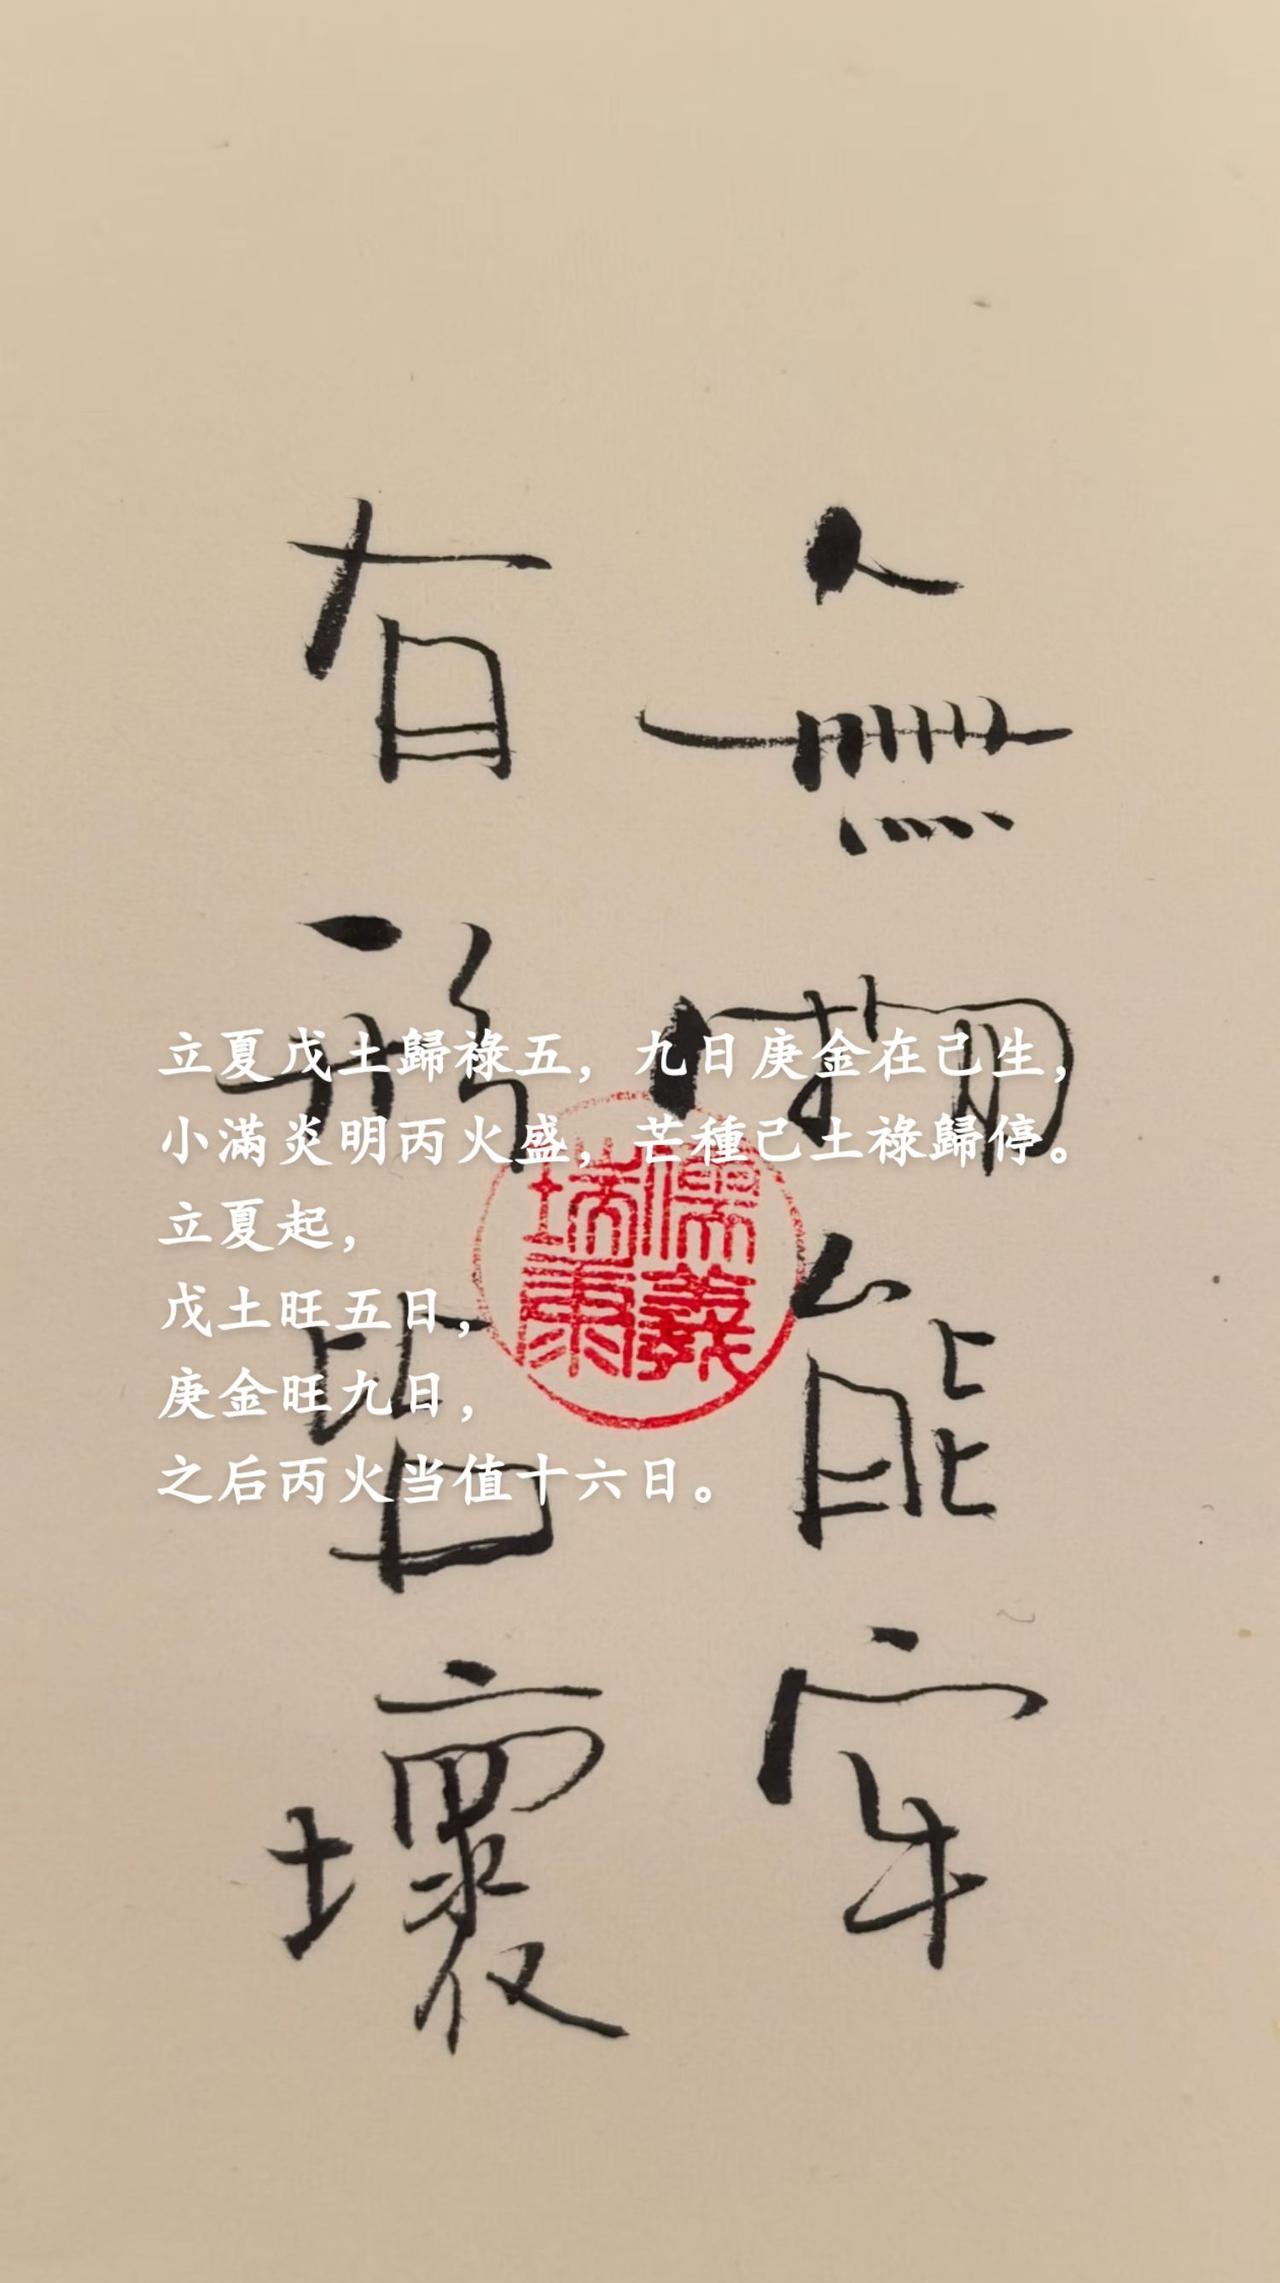 無能牢
有形皆壞
立夏戊土歸祿五，九日庚金在己生，
小滿炎明丙火盛，芒種己土祿歸停。
立夏起，
戊土旺五日，
庚金旺九日，
之后丙火当值十六日。
儒義
瑞康